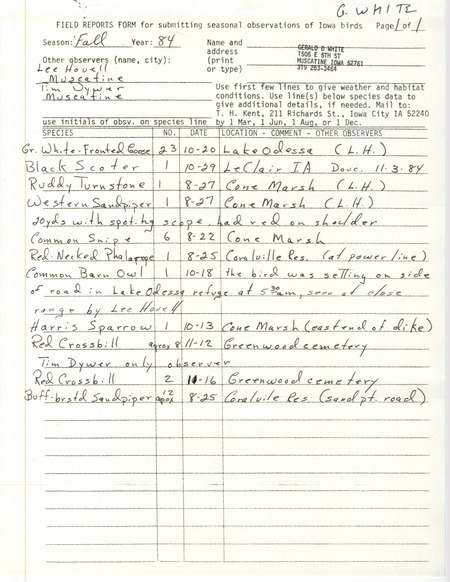 G. WHITE
FIELD REPORTS FORM for submitting seasonal observations of Iowa birds Page 1 of 1
Season: Fall Year: 84 Name and address (print or type)
GERALD D WHITE
1505 E 5TH ST
MUSCATINE IOWA 52761
319 263-3464
Other observers (name, city):
Lee Hovell
Muscatine
Tim Dywer
Muscatine
Use first few lines to give weather and habitat
conditions. Use line(s) below species data to
give additional details, if needed. Mail to:
T. H. Kent, 211 Richards St., Iowa City IA 52240
use initials of obsv. on species line by 1 Mar, 1 Jun, 1 Aug, or 1 Dec.
SPECIES NO. DATE LOCATION - COMMENT - OTHER OBSERVERS
Gr. White-Fronted Goose 23 10-20 Lake Odessa (L.H.)
Black Scoter 1 10-29 LeClair IA Douc. 11-3-84
Ruddy Turnstone 1 8-27 Cone Marsh (L.H.)
Western Sandpiper 1 8-27 Cone Marsh (L.H.)
20yds with spoting scope, had red on shoulder
Common Snipe 6 8-22 Cone Marsh
Red-Necked Phalarope 1 8-25 Coralville Res. (at power line)
Common Barn Owl 1 10-18 the bird was setting on side
of road in Lake Odessa refuge at 5 30 am, seen at close
range by Lee Hovell
Harris Sparrow 1 10-13 Cone Marsh (east end of dike)
Red Crossbill aprox 8 11-12 Greenwood cemetery
Tim Dywer only observer
Red Crossbill 2 11-16 Greenwood cemetery
Buff-brstd Sandpiper 12 apox 8-25 Coralvile Res (sand pt. road)